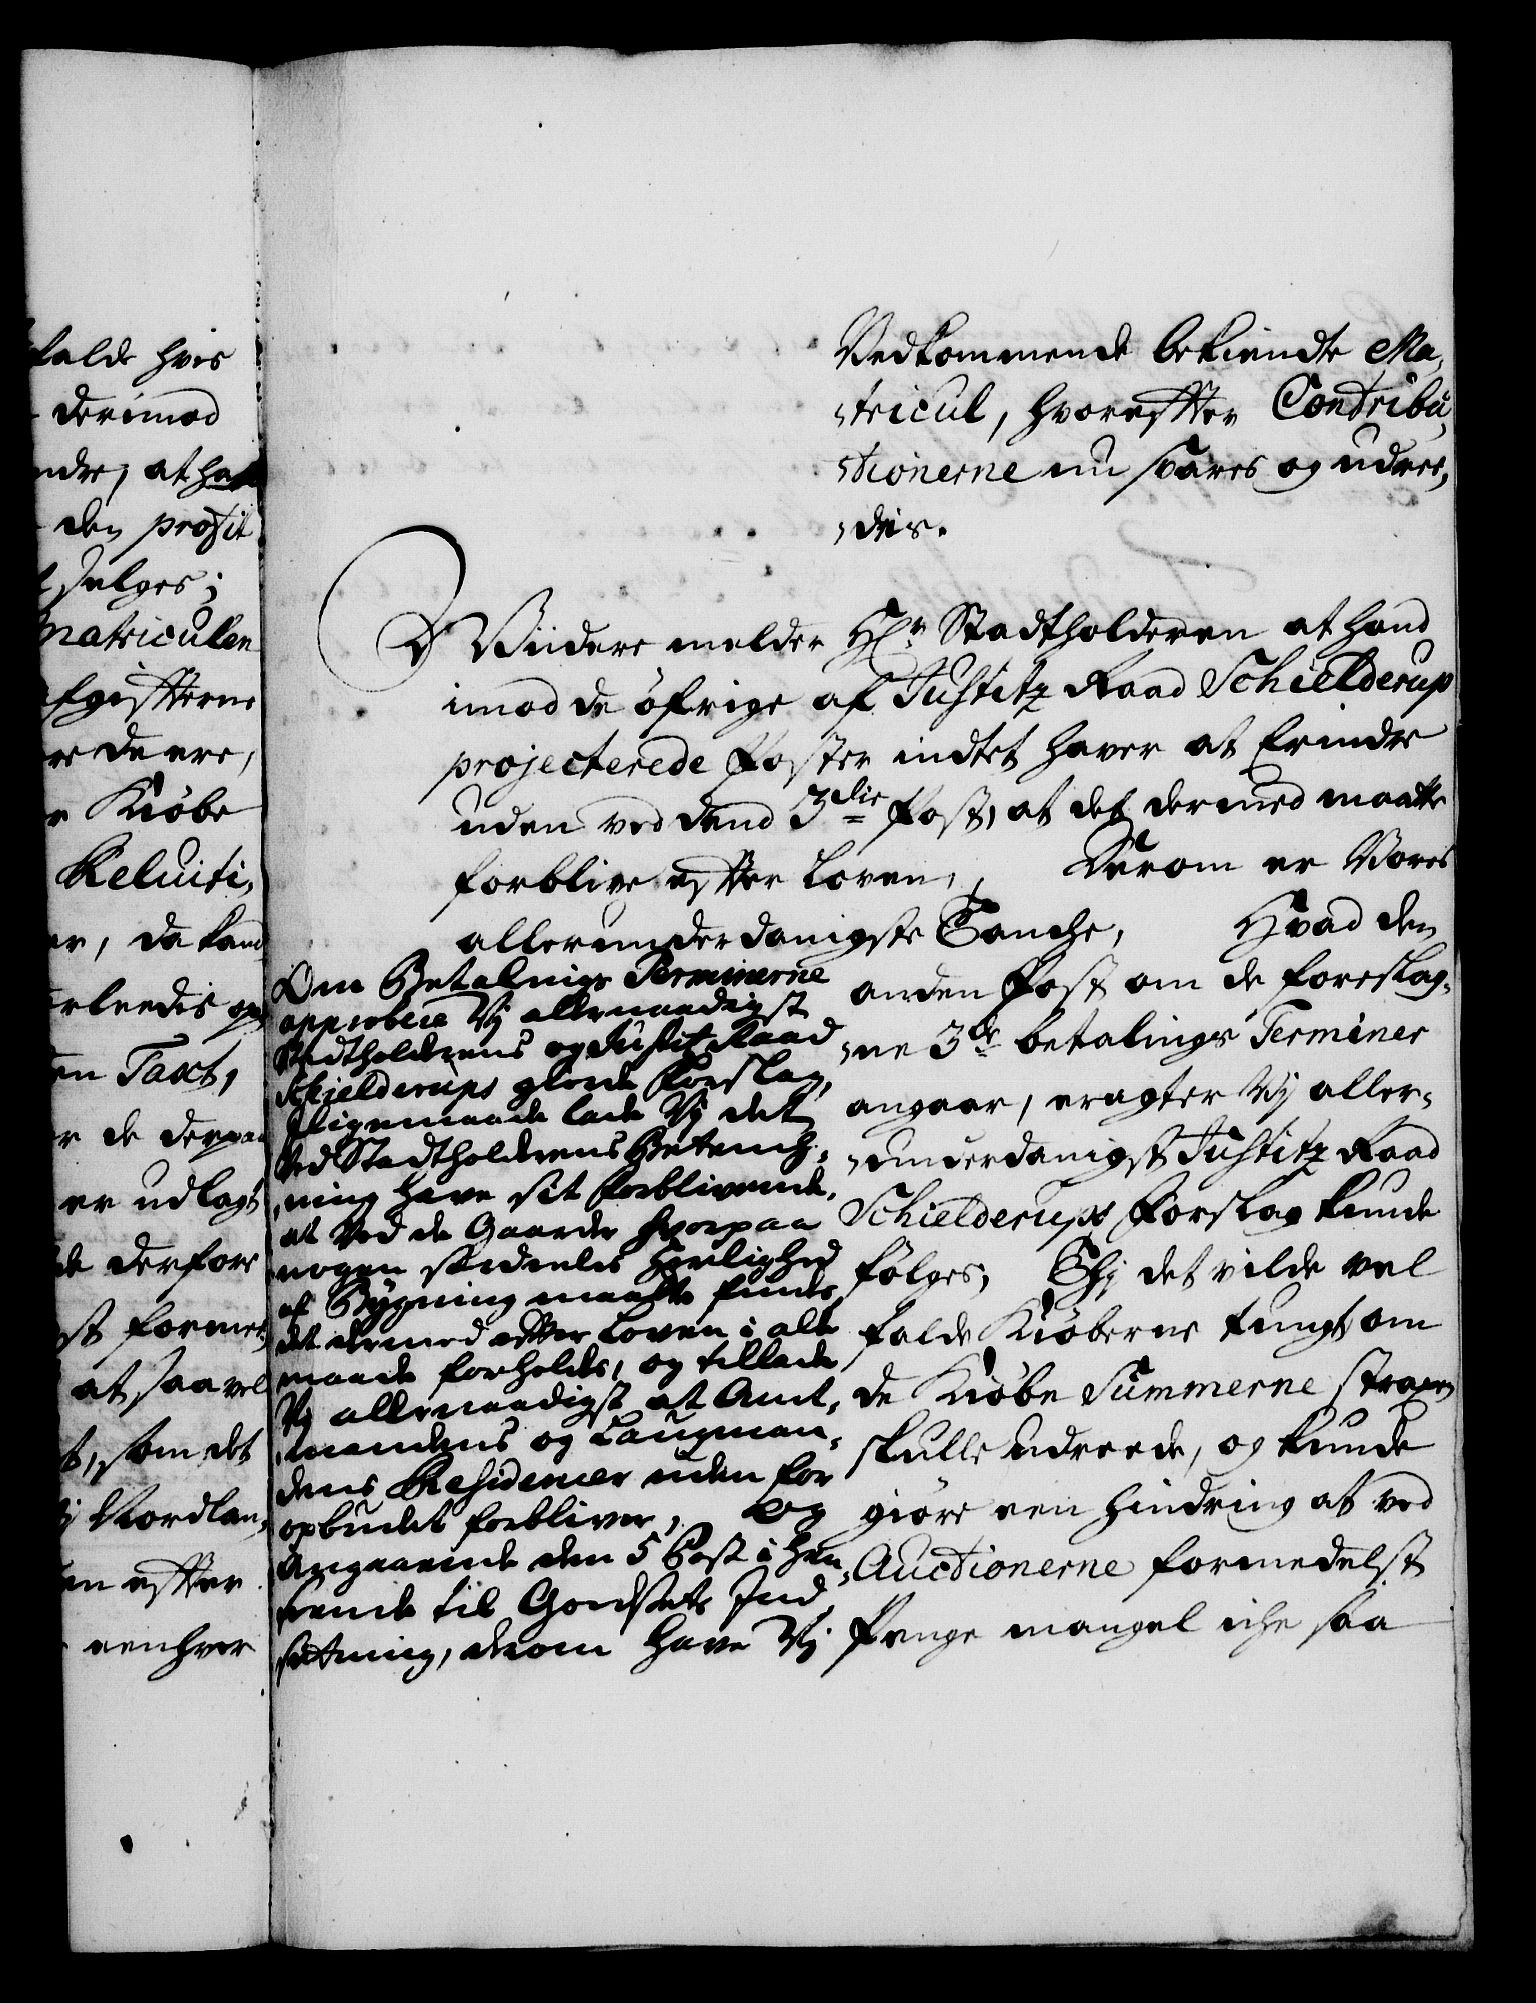 falde hvis
derimod
ndre, at
den profit
selges;
matriculen
afgiffterne
re de ere,
Kiøbe
Reluiti,
er, da kand
erleedis
en Taxt,
er de
er udlagt
de derfore
st formee,
at saavel
som det
Nordlan,
en effter
eenhver
Vedkommende bekiendte Ma,
,tricul, hvoreffter Contribu,
,tionerne nu svares og udree,
,des.
Viidere melder Hr. Stadtholderen at hand
imod de øfrige af Justitz Raad Schielderup
projecterede Poster indtet haver at Erindre
uden ved dend 3die Post, at det dermed maatte
forblive effter Loven, Derom er Vores
allerunderdanigste Tanche, Hvad den
anden Post om de foreslag,
,ne 3de betalings Terminer
angaar, eragter Vj aller,
,underdanigst Justitz Raad
Schielderups Forslag kunde
følges, Thj det vilde vel
falde Kiøberne tungt om
de Kiøbe Summerne straxen
skulle udreede, og kunde
giøre een hindring at ved
Auctionerne formedelst
Penge mangel iche saa
Om Betalnigs Terminerne
approbere Vj allernaadigst
Stadtholderens og Justitz Raad
Schielderups giorde Forslag,
ligemaade lade Vj det
ved Stadtholderens Betench,
,ning have sit forblivende,
at Ved de Gaarde hvorpaa
nogen Herlighed
af Bygning maatte findes
det dermed effter Loven i alle
maade forholdes, og tillade
Vj allernaadigst at Amt,
,mandens og Laugman,
dens Residencer uden for
opbudet forbliver, og
Angaaende den 5 Post i Hen,
seende til Godsets Ind,
,retning, derom have Vj